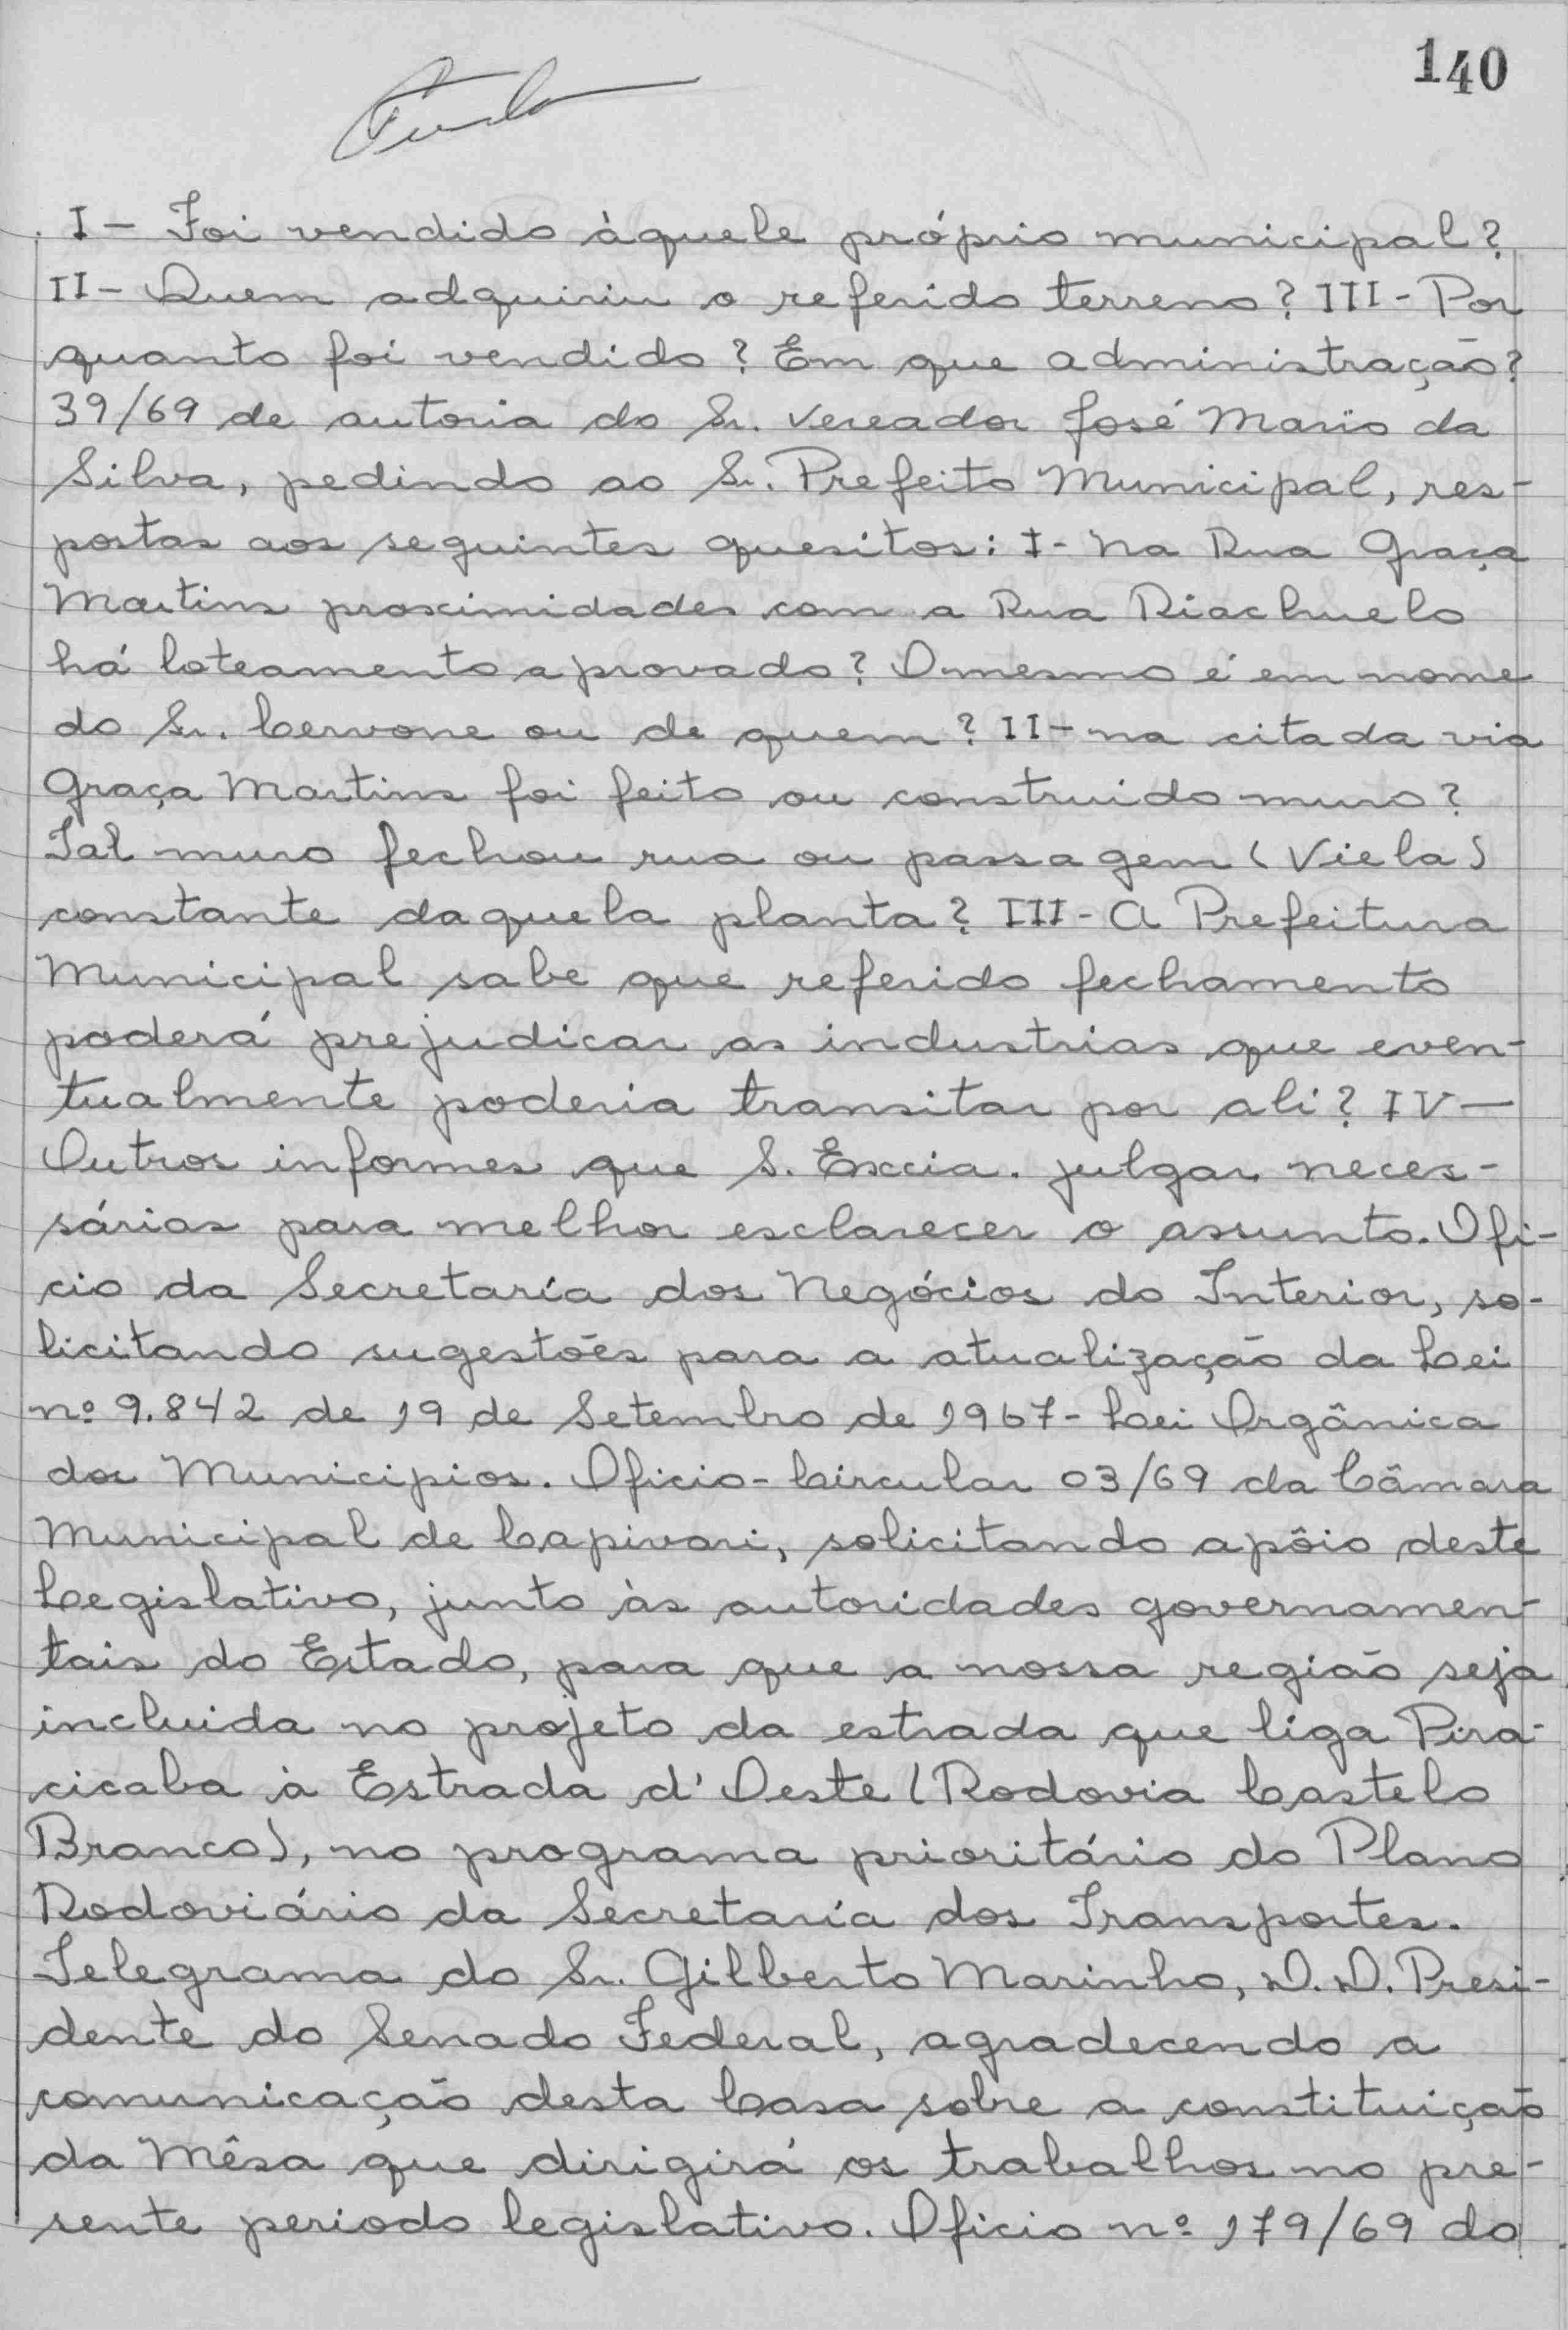 140
I - Foi vendido àquele próprio municipal?
II - Quem adquiriu o referido terreno? III - Por
quanto foi vendido? Em que administração?
39/69 de autoria do Sr. Vereador José Mario da
Silva, pedindo ao Sr. Prefeito Municipal, res-
postas aos seguintes quesitos: I - Na Rua Graça
Martins proximidades com a Rua Riachuelo
há loteamento aprovado? O mesmo é em nome
do Sr. Cervone ou de quem? II - na citada via
Graça Martins foi feito ou construido muro?
Tal muro fechou rua ou passagem (Viela)
constante daquela planta? III - A Prefeitura
Municipal sabe que referido fechamento
poderá prejudicar as industrias que even-
tualmente poderia transitar por ali? IV -
Outros informes que S. Excia. julgar neces-
sárias para melhor esclarecer o assunto. Ofi-
cio da Secretaría dos Negócios do Interior, so-
licitando sugestões para a atualização da Lei
nº 9.842 de 19 de Setembro de 1967 - Lei Orgânica
dos Municipios. Oficio-Circular 03/69 da Câmara
Municipal de Capivari, solicitando apôio deste
Legislativo, junto às autoridades governamen-
tais do Estado, para que a nossa região seja
incluida no projeto da estrada que liga Pira-
cicaba à Estrada d'Oeste (Rodovia Castelo
Branco), no programa prioritário do Plano
Rodoviário da Secretaría dos Transportes.
Telegrama do Sr. Gilberto Marinho, D.D. Presi-
dente do Senado Federal, agradecendo a
comunicação desta Casa sobre a constituição
da Mêsa que dirigirá os trabalhos no pre-
sente periodo legislativo. Oficio nº 179/69 do